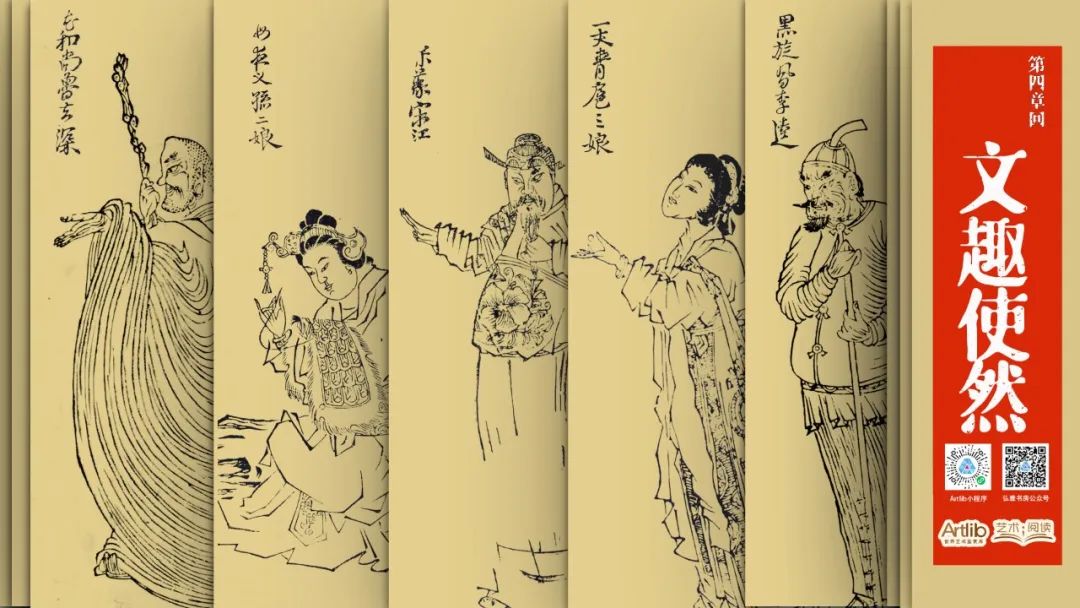 花和尚魯智深
母夜叉孫二娘
宋江
一丈青扈三娘
黑旋風李逵
第四章回
文趣使然
Artlib小程序
弘雅书房公众号
Artlib
世界艺术鉴赏库
艺术
阅读